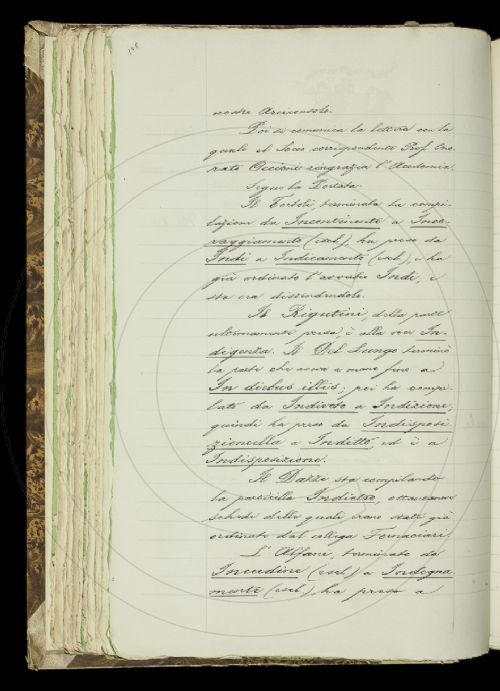 146
nostro Arciconsolo.
Poi si comunica la lettera con la
quale il Socio corrispondente Prof. Ono-
rato Occioni ringrazia l'Accademia.
Segue la Tornata.
Il Tortoli, terminata la compi-
lazione da Incontinente a Inco-
raggiamento (escl.), ha preso da
Indi a Indicamento (escl.), e ha
già ordinato l'avverbio Indi, e
sta ora distendendolo.
Il Rigutini, della parte
ultimamente presa, è alla voce In-
digenza. Il Del Lungo terminò
la parte che aveva a mano fino a
In diebus illis; poi ha compi-
lato da Indiveto a Indizione,
quindi ha preso da Indisposi-
zioncella a Inditto ed è a
Indisposizione.
Il Dazzi sta compilando
la particella Indietro,
schede delle quali erano state già
ordinate dal collega Fornaciari.
L'Alfani, terminato da
Incudine (escl.) a Indegna
mente (escl.), ha preso a